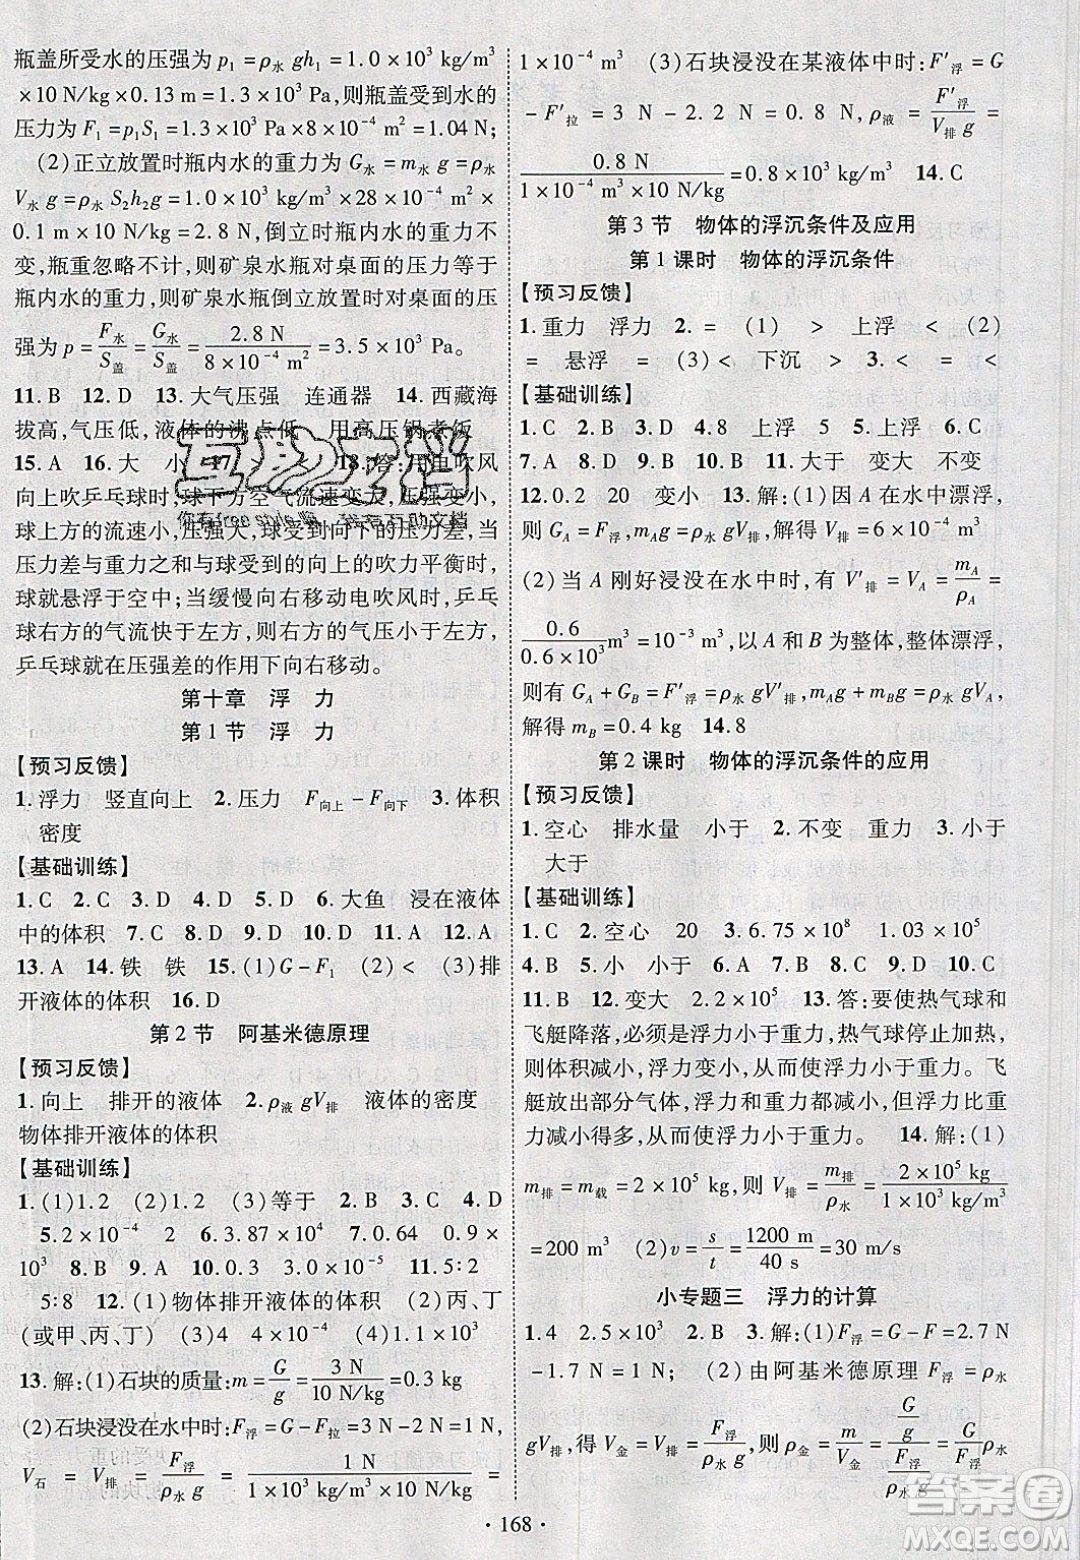 瓶盖所受水的压强为 p₁=ρ水 gh₁=1.0×10³ kg/m³
×10 N/kg×0.13 m=1.3×10³ Pa,则瓶盖受到水的
压力为 F₁=p₁S₁=1.3×10³ Pa×8×10⁻⁴ m²=1.04 N;
(2)正立放置时瓶内水的重力为 G水=m水 g=ρ水
V水 g=ρ水 S₂h₂g=1.0×10³ kg/m³×28×10⁻⁴ m²×
0.1 m×10 N/kg=2.8 N,倒立时瓶内水的重力不
变,瓶重忽略不计,则矿泉水瓶对桌面的压力等于
瓶内水的重力,则矿泉水瓶倒立放置时对桌面的压
强为 p=F水/S盖=G水/S盖=2.8 N/8×10⁻⁴ m²=3.5×10³ Pa。
11.B 12.D 13.大气压强 连通器 14.西藏海
拔高,气压低,液体的沸点低 用高压锅煮饭
15.A 16.大 小 18.答:用电吹风
向上吹乒乓球时,球下方空气流速变大,压强变小,
球上方的流速小,压强大,球受到向下的压力差,当
压力差与重力之和与球受到的向上的吹力平衡时,
球就悬浮于空中;当缓慢向右移动电吹风时,乒乓
球右方的气流快于左方,则右方的气压小于左方,
乒乓球就在压强差的作用下向右移动。
第十章 浮 力
第1节 浮 力
【预习反馈】
1.浮力 竖直向上 2.压力 F向上-F向下 3.体积
密度
【基础训练】
1.C 2.C 3.C 4.D 5.D 6.大鱼 浸在液体
中的体积 7.C 8.C 9.D 10.D 11.A 12.A
13.A 14.铁 铁 15.(1)G-F₁ (2)< (3)排
开液体的体积 16.D
第2节 阿基米德原理
【预习反馈】
1.向上 排开的液体 2.ρ液 gV排 液体的密度
物体排开液体的体积
【基础训练】
1.(1)1.2 (2)1.2 (3)等于 2.B 3.C 4.D
5.2×10⁻⁴ 2 6.3.87×10⁴ 7.0.64 0.9×
10³ 8.B 9.A 10.0.3 3.0×10³ 11.5∶2
5∶8 12.(1)物体排开液体的体积 (2)丙、丁
(或甲、丙、丁) (3)液体密度 (4)1.4 1.2×10³
13.解:(1)石块的质量:m=G/g=3 N/10 N/kg=0.3 kg
(2)石块浸没在水中时:F浮=G-F拉=3 N-2 N=1 N,
V石=V排=F浮/ρ水 g=1 N/1×10³ kg/m³×10 N/kg=
1×10⁻⁴ m³ (3)石块浸没在某液体中时:F′浮=G
-F′拉=3 N-2.2 N=0.8 N,ρ液=F′浮/V排 g=
0.8 N/1×10⁻⁴ m³×10 N/kg=0.8×10³ kg/m³ 14.C
第3节 物体的浮沉条件及应用
第1课时 物体的浮沉条件
【预习反馈】
1.重力 浮力 2.= (1) > 上浮 < (2)
= 悬浮 = (3)< 下沉 > 3.< = <
【基础训练】
1.C 2.B 3.D 4.8 上浮 5 5.上浮 6.C
7.A 8.D 9.B 10.B 11.大于 变大 不变
12.0.2 20 变小 13.解:(1)因 A 在水中漂浮,
则 GA=F浮,mAg=ρ水 gV排,解得 V排=6×10⁻⁴ m³
(2)当 A 刚好浸没在水中时,有 V′排=VA=mA/ρA=
0.6/0.6×10³ m³=10⁻³ m³,以 A 和 B 为整体,整体漂浮,
则有 GA+GB=F′浮=ρ水 gV′排,mAg+mBg=ρ水 gVA,
解得 mB=0.4 kg 14.8
第2课时 物体的浮沉条件的应用
【预习反馈】
1.空心 排水量 小于 2.不变 重力 3.小于
大于
【基础训练】
1.C 2.空心 20 3.6.75×10⁸ 1.03×10⁵
4.B 5.小 小于 6.A 7.B 8.D 9.D 10.C
11.B 12.变大 2.2×10⁵ 13.答:要使热气球和
飞艇降落,必须是浮力小于重力,热气球停止加热,
则体积减小,浮力变小,最终使得浮力小于重力。飞
艇放出部分气体,浮力和重力都减小,但浮力比重
力减小得多,从而使浮力小于重力。 14.解:(1)
m排=m载=2×10⁵ kg,V排=m排/ρ水=2×10⁵ kg/1×10³ kg/m³
=200 m³ (2)v=s/t=1200 m/40 s=30 m/s
小专题三 浮力的计算
1.4 2.5×10³ 2.B 3.解:(1)F浮=G-F=2.7 N
-1.7 N=1 N; (2)由阿基米德原理 F浮=ρ水
gV排,得 V金=V排=F浮/ρ水 g,则 ρ金=m/V金=(G/g)/(F浮/ρ水 g)=G/F浮 ρ水
· 168 ·
互助文档
答案圈
MXQE.COM